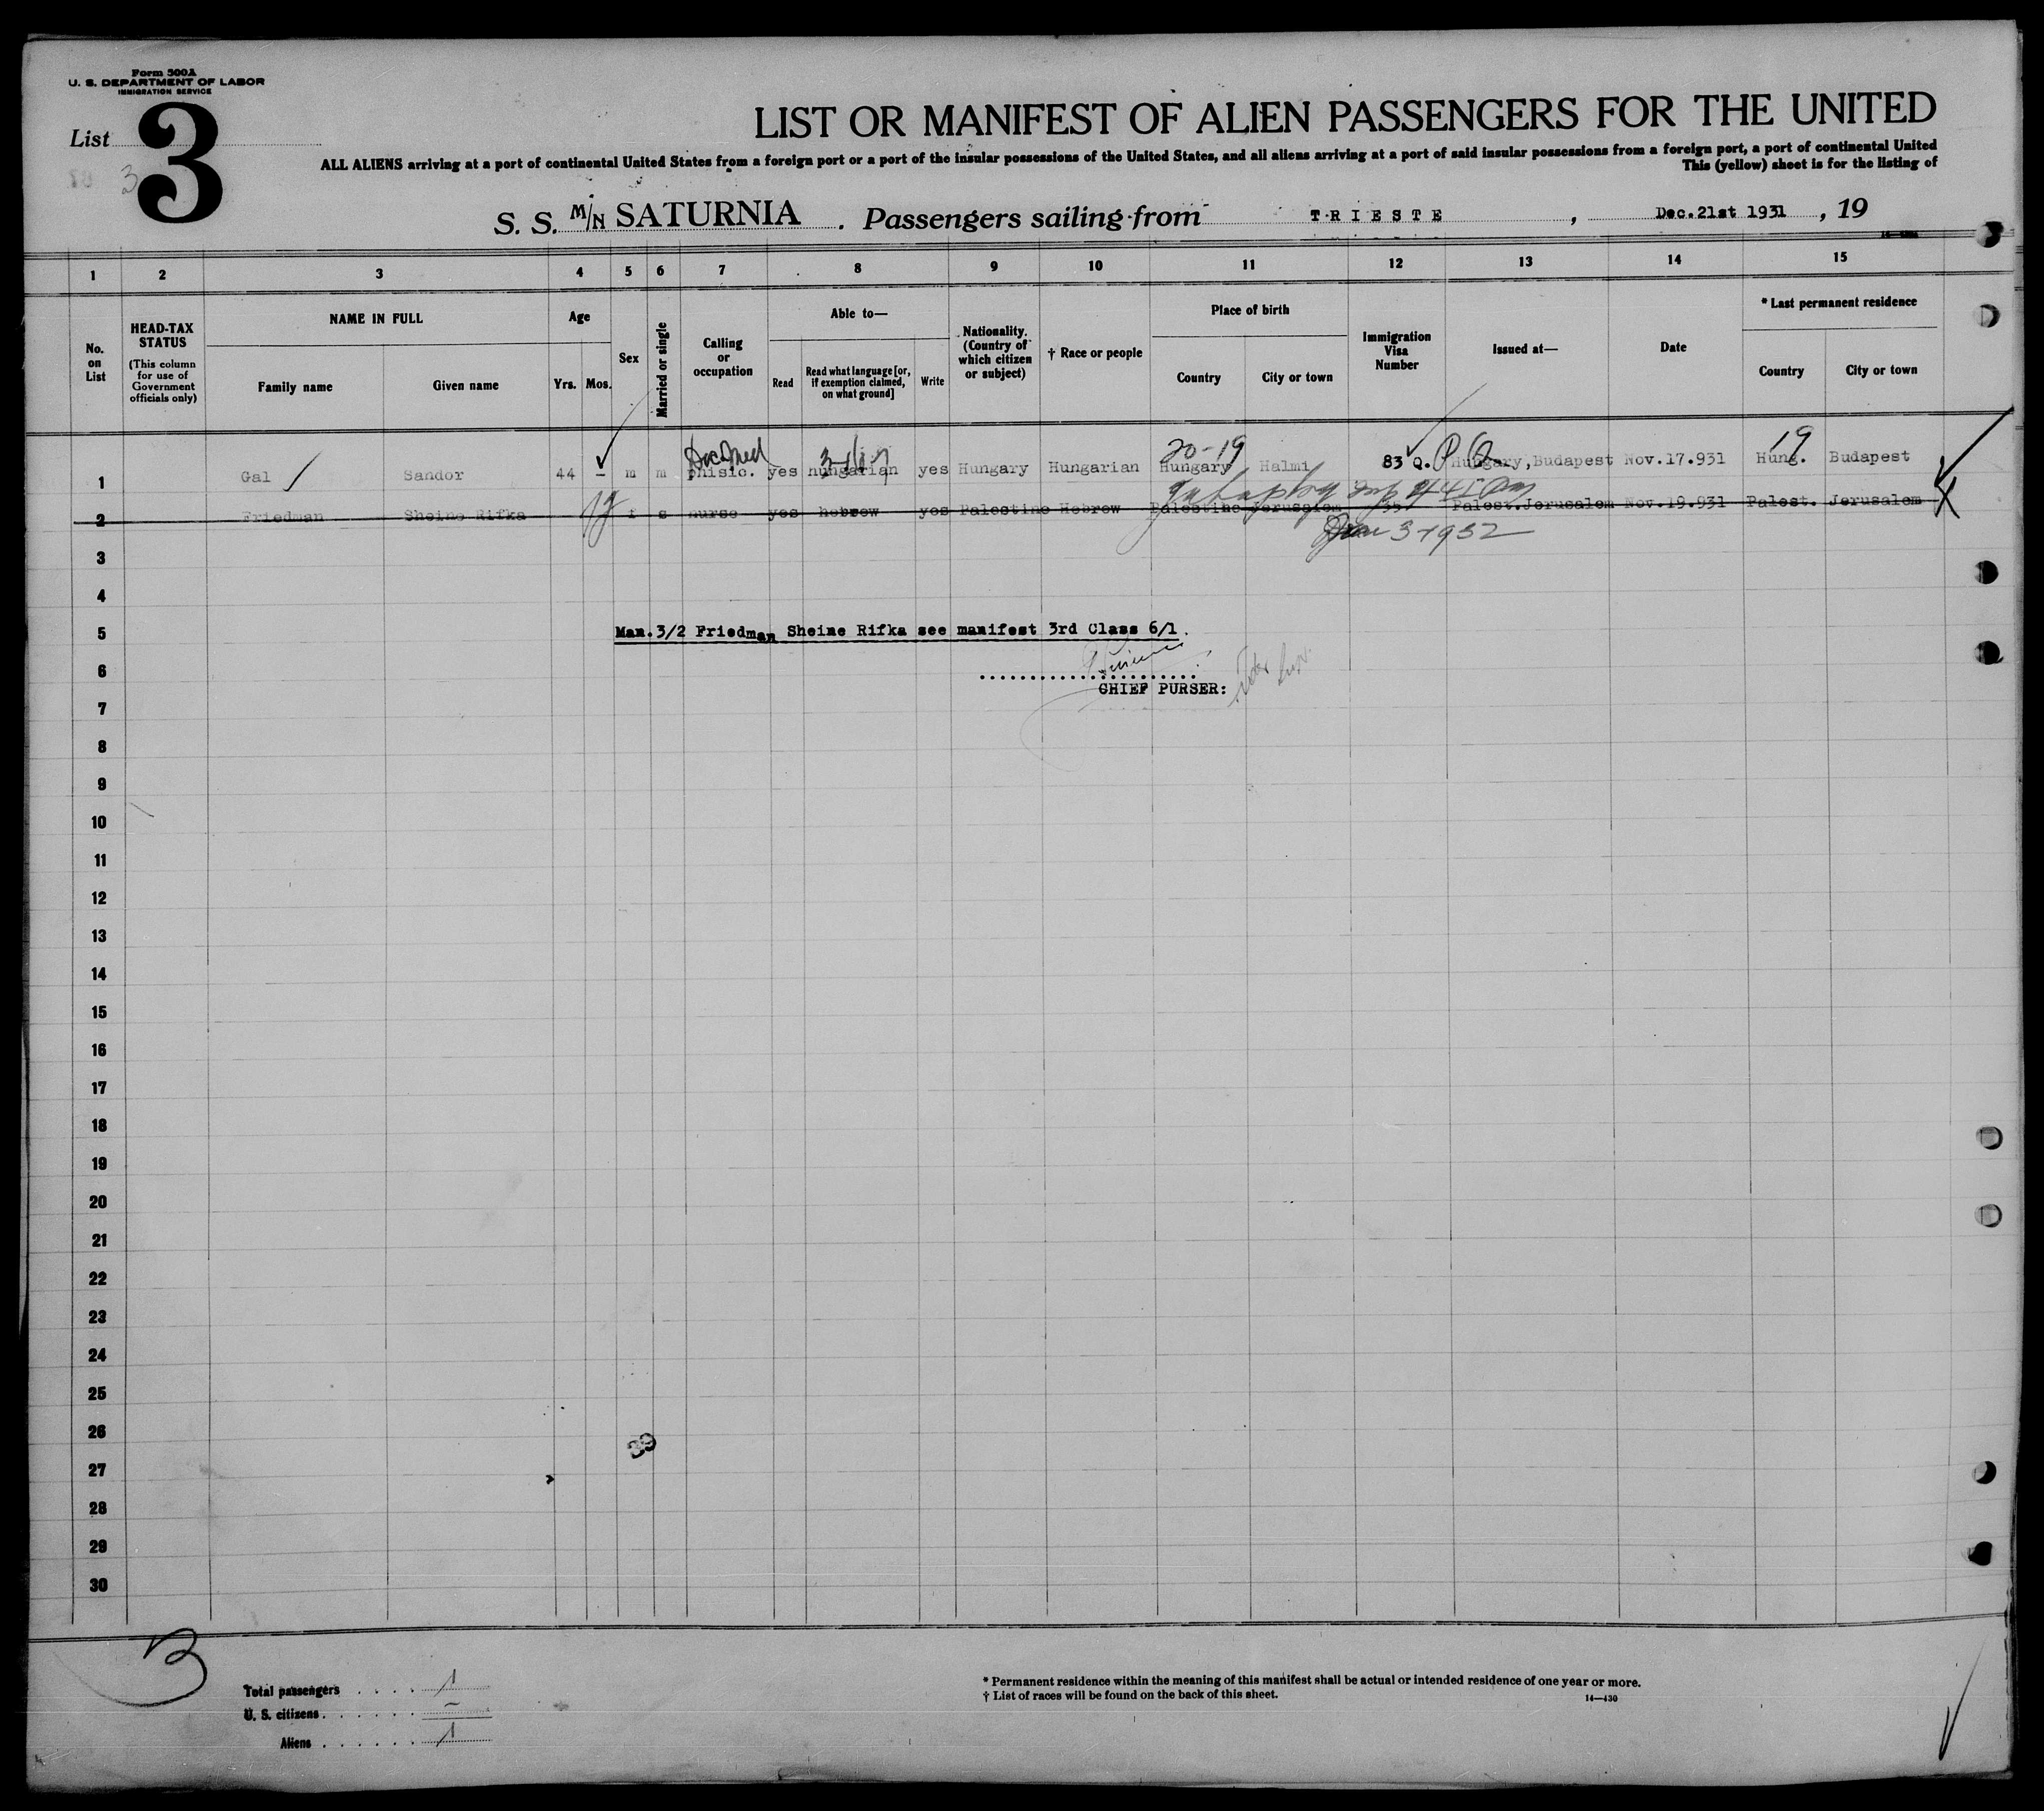 Form 500A
U. S. DEPARTMENT OF LABOR
IMMIGRATION SERVICE
List 3
3
LIST OR MANIFEST OF ALIEN PASSENGERS FOR THE UNITED
ALL ALIENS arriving at a port of continental United States from a foreign port or a port of the insular possessions of the United States, and all aliens arriving at a port of said insular possessions from a foreign port, a port of continental United
This (yellow) sheet is for the listing of
S. S. M/N SATURNIA . Passengers sailing from TRIESTE , Dec.21st 1931 , 19
1 2 3 4 5 6 7 8 9 10 11 12 13 14 15
No. on List
HEAD-TAX STATUS (This column for use of Government officials only)
NAME IN FULL
Family name Given name
Age
Yrs. Mos.
Sex
Married or single
Calling or occupation
Able to—
Read Read what language [or, if exemption claimed, on what ground] Write
Nationality. (Country of which citizen or subject)
† Race or people
Place of birth
Country City or town
Immigration Visa Number
Issued at—
Date
* Last permanent residence
Country City or town
20-19 19
1 Gal Sandor 44 – m m phisic. yes hungarian yes Hungary Hungarian Hungary Halmi 83 Q. Hungary,Budapest Nov.17.931 Hung. Budapest
2 Friedman Sheine Rifka f s nurse yes hebrew yes Palestine Hebrew Palestine Jerusalem Palest.Jerusalem Nov.19.931 Palest. Jerusalem
Jan 3-1932
3
4
5 Man.3/2 Friedman Sheine Rifka see manifest 3rd Class 6/1.
6
CHIEF PURSER:
7
8
9
10
11
12
13
14
15
16
17
18
19
20
21
22
23
24
25
26
39
27
28
29
30
3
Total passengers . . . . 1
U. S. citizens . . . . . . –
Aliens . . . . . . 1
* Permanent residence within the meaning of this manifest shall be actual or intended residence of one year or more.
† List of races will be found on the back of this sheet.
14—430